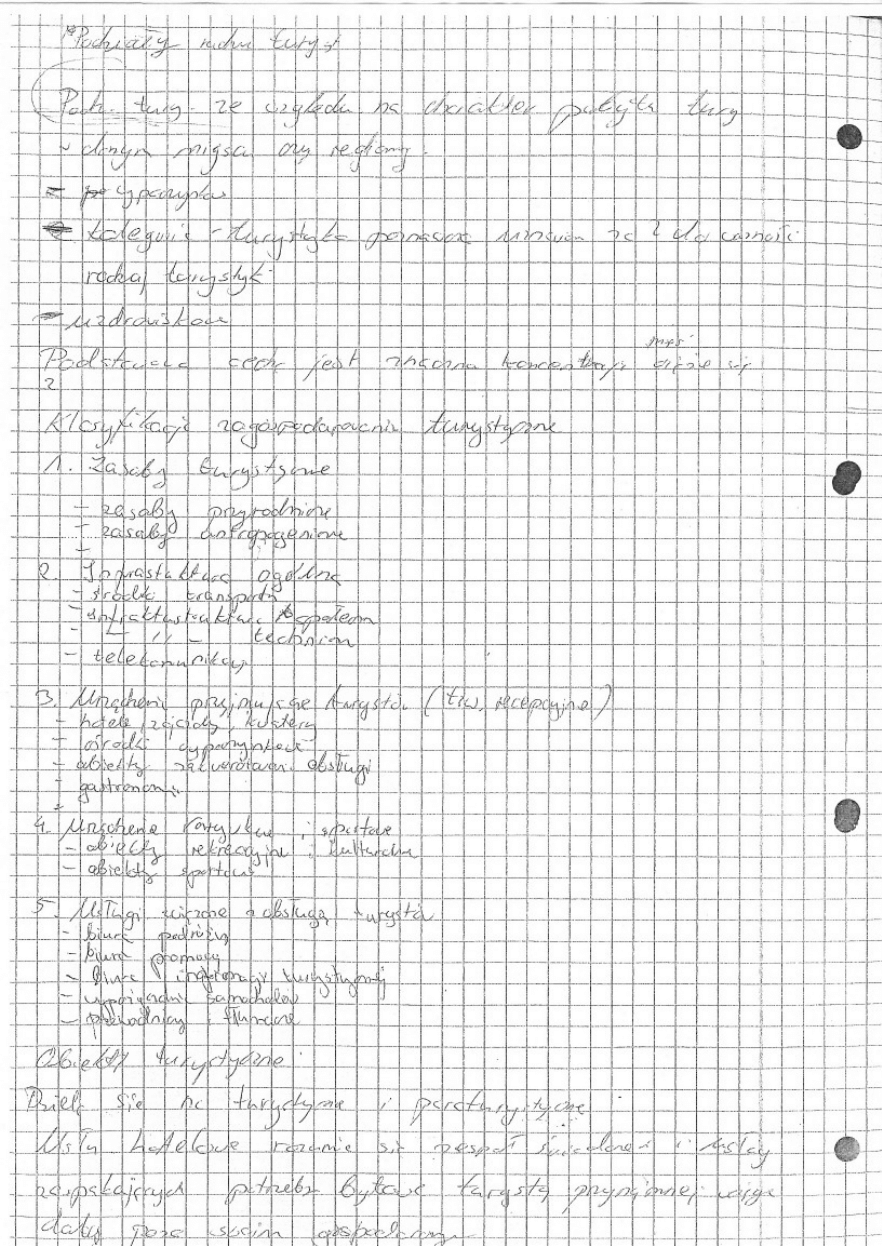 Podziały ruchu turyst
Podz. turys. ze względu na charakter pobytu turys
w danym miejscu czy regionie.
wypoczynkow
kategorie - turystyka poznawcza
rodzaj turystyk
- uzdrowiskow
Podstawowa cechą jest znaczna koncentracja się
2
Klasyfikacja zagospodarowania turystyczne
1. Zasoby turystyczne
- zasoby przyrodnicze
- zasoby antropogeniczne
-
2. Infrastruktura ogólna
- środki transportu
- infrastruktura społeczn
- " - techniczn
- telekomunikacj
3. Urządzenia przyjmujące turystów (tzw. recepcyjne)
- hotele, zajazdy, kwatery
- ośrodki wypoczynkowe
- obiekty zakwaterowan. obsługi
- gastronom.
-
4. Urządzenia i sportowe
- obiekty rekreacyjne i kulturalne
- obiekty sportowe
5. Usługi związane z obsługą turystów
- biura podróży
- biura promocji
- biura informacji turystycznej
- wypożyczalnie samochodów
- przewodnicy i tłumacze
Obiekty turystyczne
Dzielą się na turystyczne i paraturystyczne
Usłu hotelowe rozumie się zespół świadczeń i usług
zaspokajających potrzeby bytowe turysty przynajmniej
doby poza swoim gospodarstw